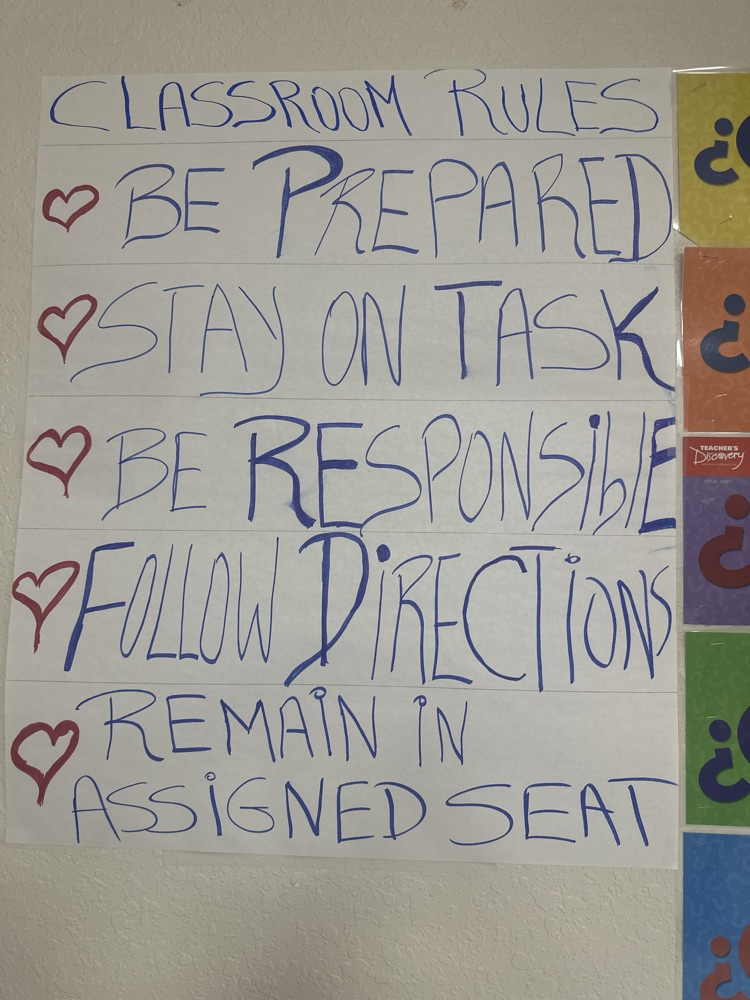 CLASSROOM RULES
BE PREPARED
STAY ON TASK
BE RESPONSiblE
FOLLOW DiRECTiONS
REMAiN iN
ASSiGNED SEAT
¿
¿
TEACHER'S
Discovery
¿
¿
¿